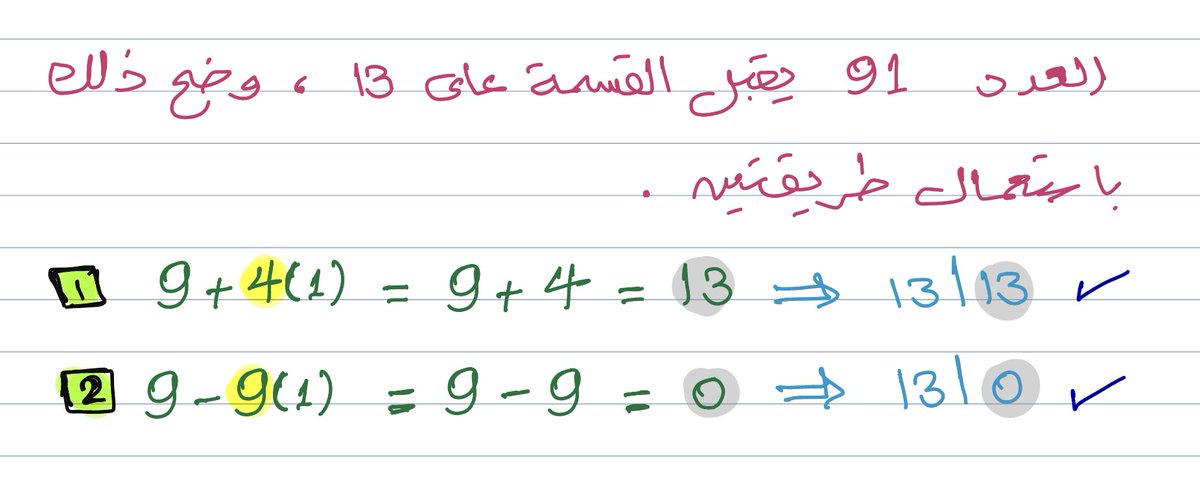 العدد 91 يقبل القسمة على 13 ، وضح ذلك
باستعمال طريقتين .
1 9 + 4(1) = 9 + 4 = 13 ⇒ 13 | 13 ✓
2 9 - 9(1) = 9 - 9 = 0 ⇒ 13 | 0 ✓